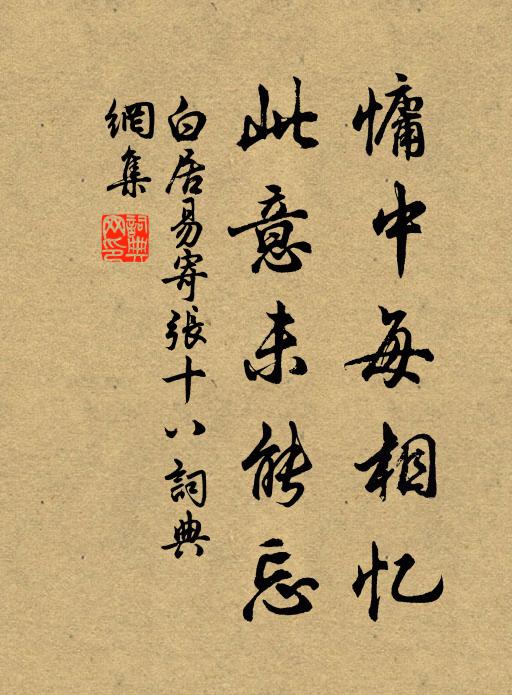 慵中每相忆
此意未能忘
白居易寄張十八詞典
網集
詞典
网印